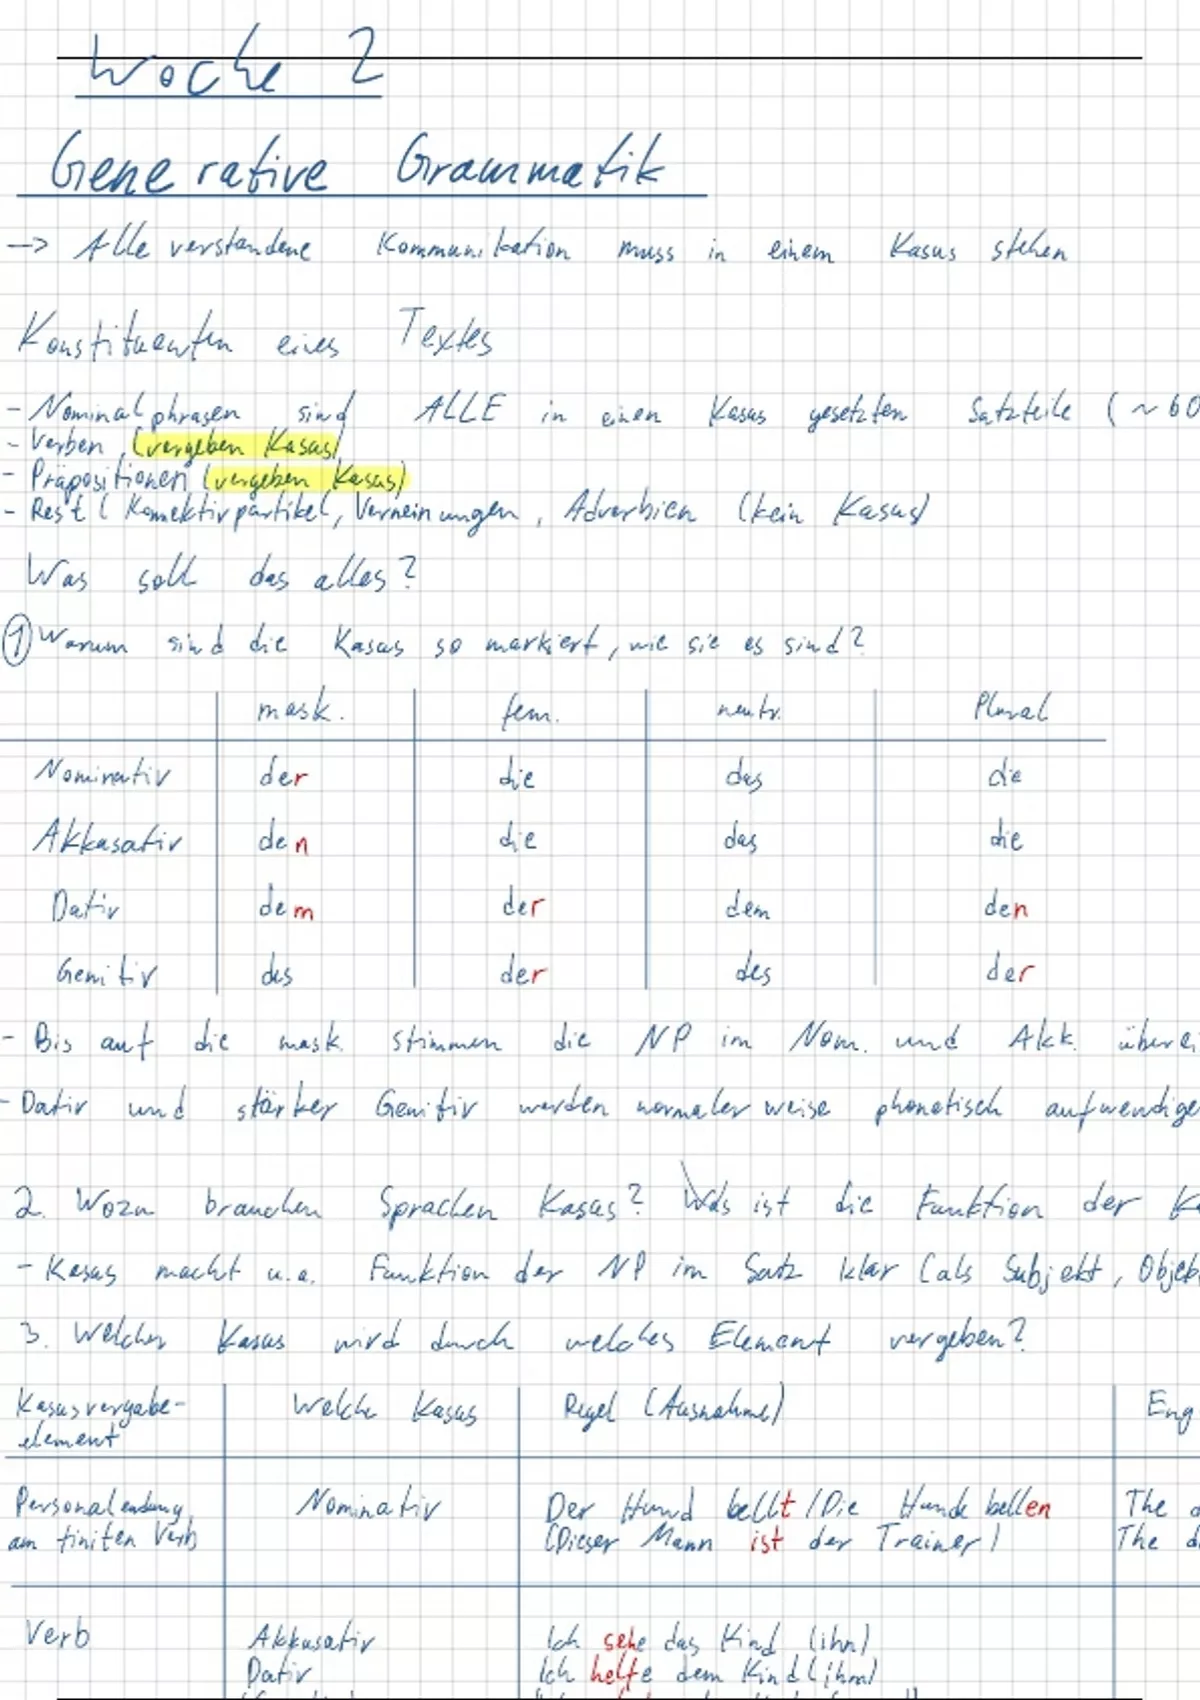 Woche 2
Generative Grammatik
--> Alle verstandene Kommunikation muss in einem Kasus stehen
Konstituenten eines Textes
- Nominalphrasen sind ALLE in einen Kasus gesetzten Satzteile (~60
- Verben (vergeben Kasus)
- Präpositionen (vergeben Kasus)
- Rest (Konnektivpartikel, Verneinungen, Adverbien (kein Kasus)
Was soll das alles?
① Warum sind die Kasus so markiert, wie sie es sind?
mask. fem. neutr. Plural
Nominativ der die das die
Akkusativ den die das die
Dativ dem der dem den
Genitiv des der des der
- Bis auf die mask. stimmen die NP im Nom. und Akk. überei
- Dativ und stärker Genitiv werden normalerweise phonetisch aufwendige
2. Wozu brauchen Sprachen Kasus? Was ist die Funktion der K
- Kasus macht u.a. Funktion der NP im Satz klar (als Subjekt, Objek
3. Welcher Kasus wird durch welches Element vergeben?
Kasusvergabe- Welche Kasus Regel (Ausnahme) Eng
element
Personalendung Nominativ Der Hund bellt / Die Hunde bellen The d
am finiten Verb (Dieser Mann ist der Trainer) The d
Verb Akkusativ Ich sehe das Kind (ihn)
Dativ Ich helfe dem Kind (ihm)